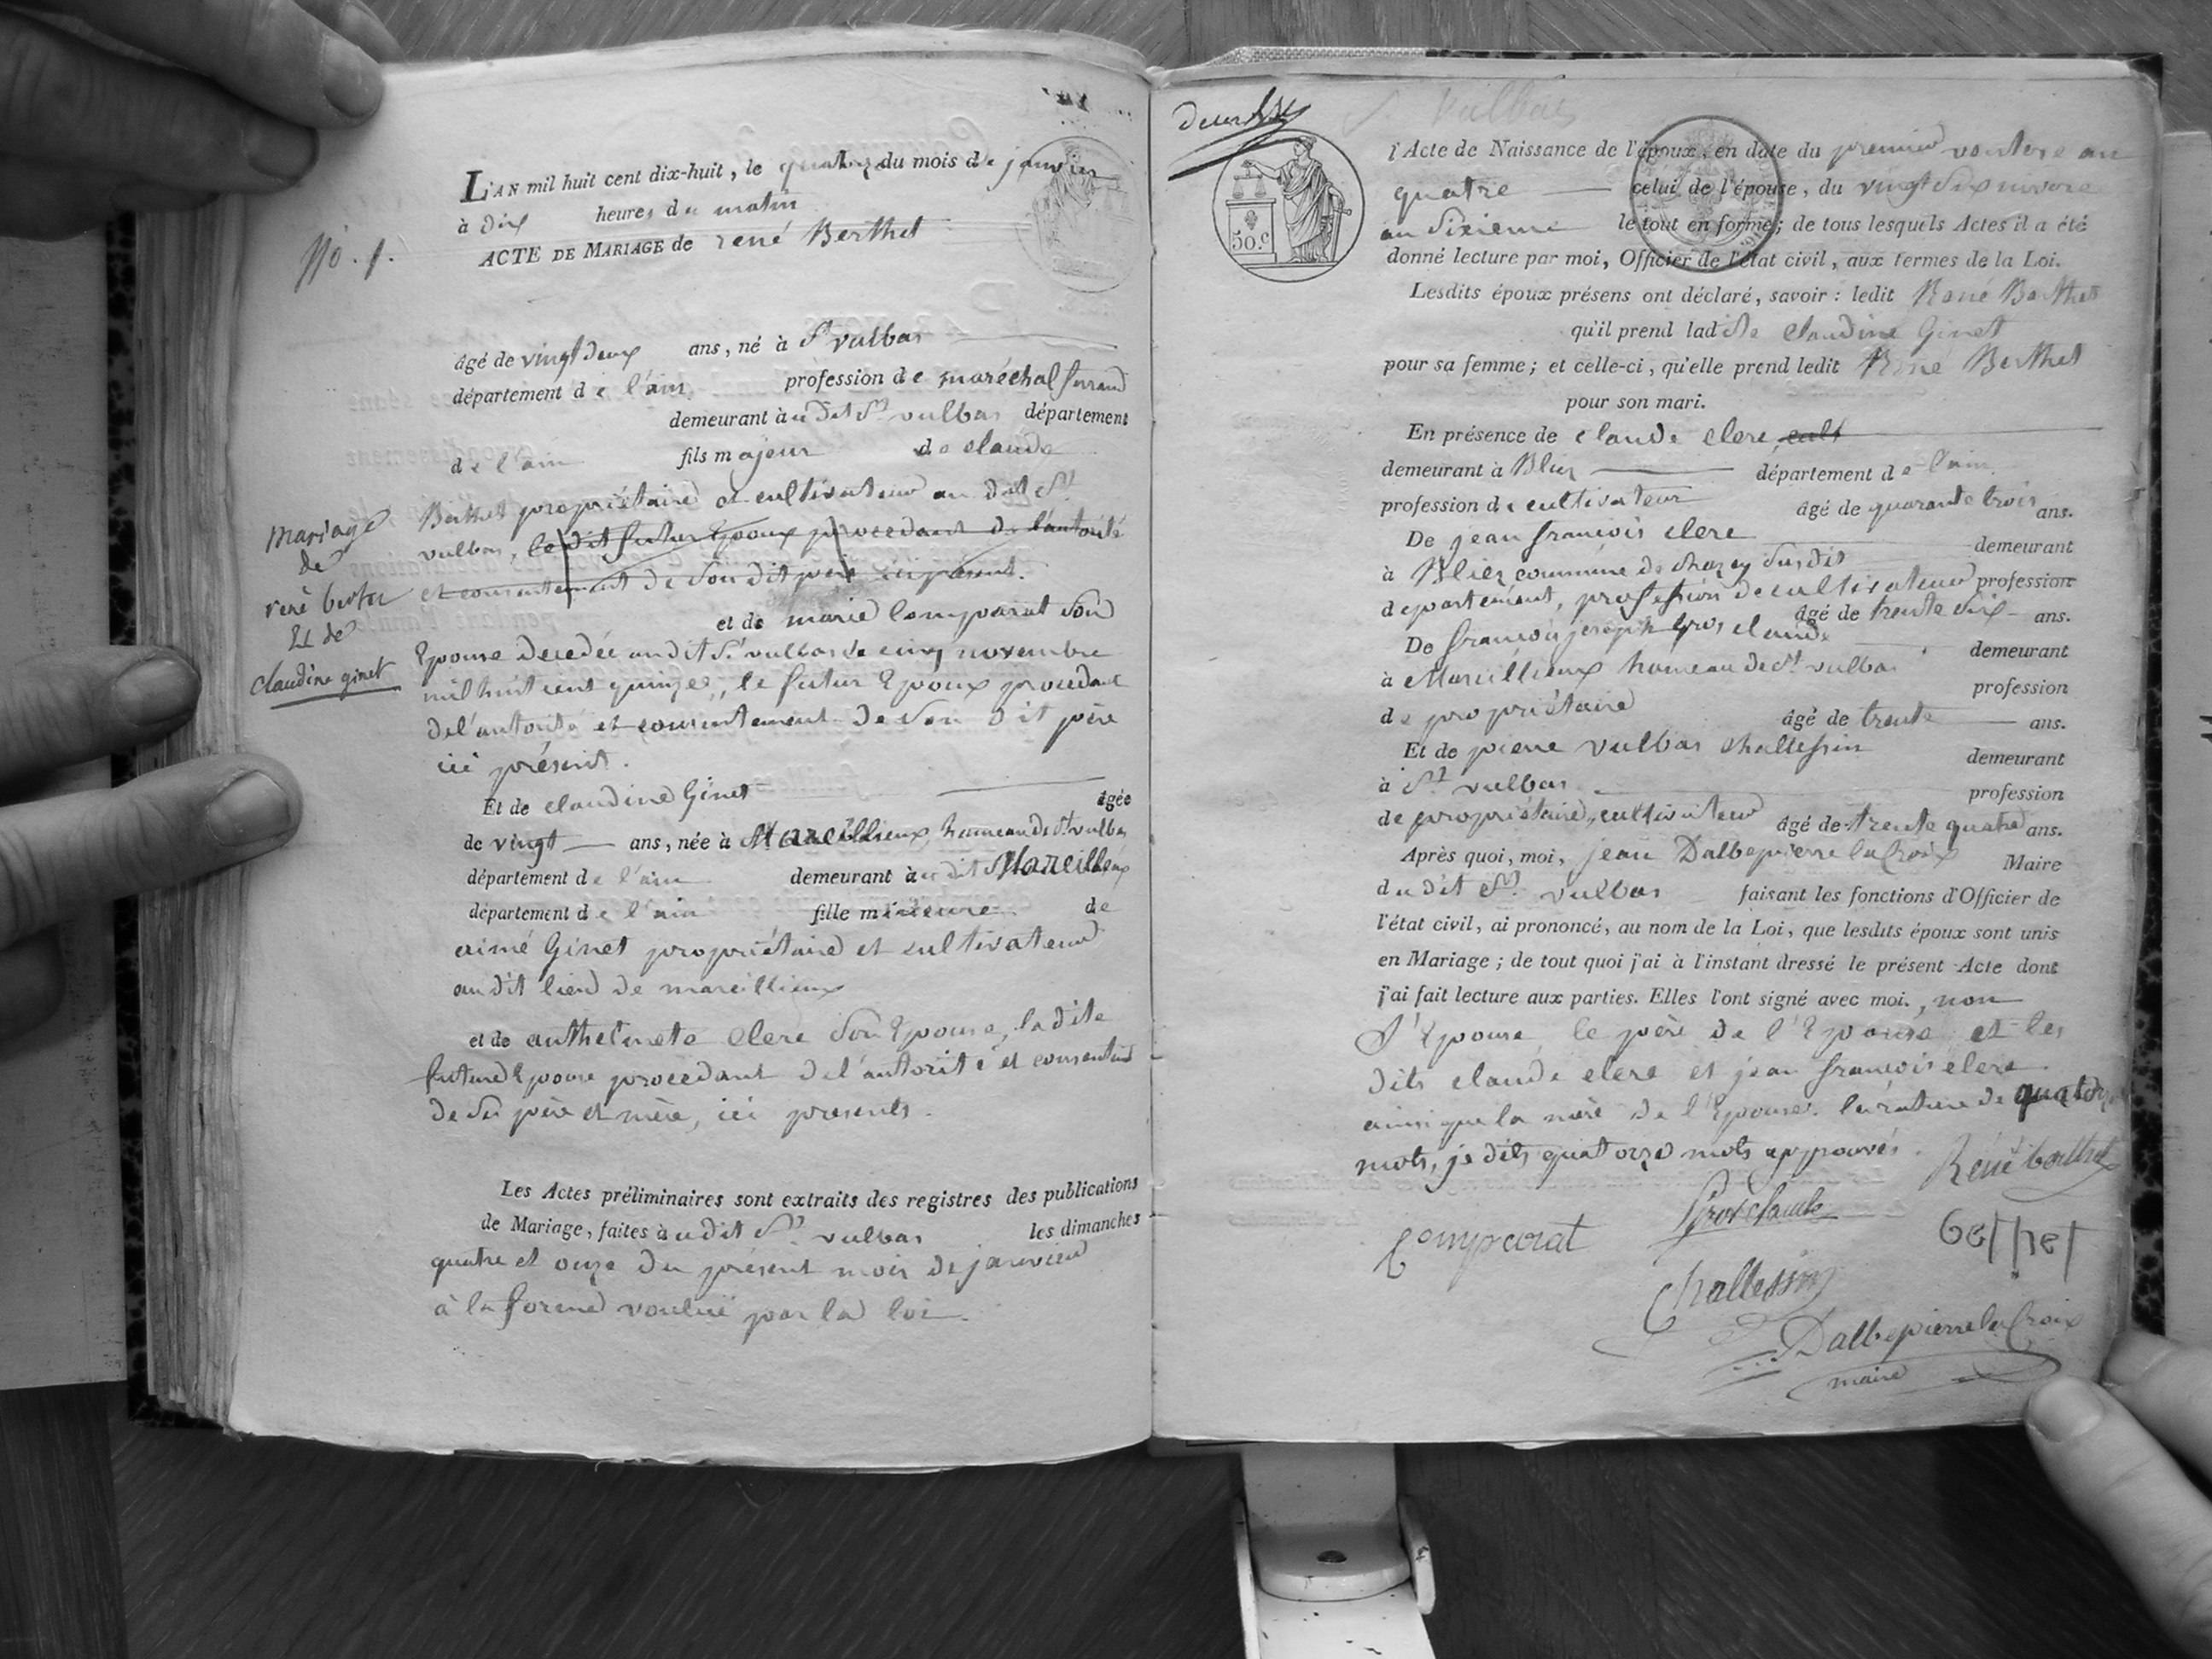 No. 1.
L'AN mil huit cent dix-huit, le quatorze du mois de janvier
à dix heures du matin
ACTE DE MARIAGE de rené Berthet
âgé de vingt deux ans, né à St vulbas
département de l'ain, profession de maréchal ferrand
demeurant àu dit St vulbas département
de l'ain fils majeur de claude
Berthet propriétaire et cultivateur au dit St
vulbas, le dit futur Epoux procedant de l'autorité
et consentement de son dit père ici présent.
et de marie Comparat son
Epouse decedée au dit St vulbas le cinq novembre
mil huit cent quinze, le futur Epoux procedant
de l'autorité et consentement de son dit père
ici présent.
mariage
de
rené bertet
Et de
claudine ginet
Et de claudine Ginet âgée
de vingt ans, née à Marcillieux, hameau de St vulbas
département de l'ain demeurant àu dit Marcilleux
département de l'ain fille mineure de
aimé Ginet propriétaire et cultivateur
au dit lieu de marcillieux
et de anthelmete Clerc son Epouse, la dite
future Epouse procedant de l'autorité et consentmt
de ses père et mère, ici presents.
Les Actes préliminaires sont extraits des registres des publications
de Mariage, faites àudit St vulbas les dimanches
quatre et onze du présent mois de janvier
à la forme voulue par la loi.
St Vulbas
l'Acte de Naissance de l'époux, en date du premier ventose an
quatre celui de l'épouse, du vingt six nivose
an sixieme le tout en forme; de tous lesquels Actes il a été
50.c
donné lecture par moi, Officier de l'état civil, aux termes de la Loi.
Lesdits époux présens ont déclaré, savoir: ledit René Berthet
qu'il prend ladite Claudine Ginet
pour sa femme; et celle-ci, qu'elle prend ledit René Berthet
pour son mari.
En présence de claude clerc, cult
demeurant à Blier département de l'ain.
profession de cultivateur âgé de quarante trois ans.
De jean françois clerc demeurant
à Blier commune de Chazey susdit
departement, profession de cultivateur profession
âgé de trente six ans.
De françois joseph gros claude demeurant
à Marcillieux hameau de St vulbas profession
de propriétaire âgé de trente ans.
Et de pierre vulbas challessin demeurant
à St vulbas profession
de propriétaire, cultivateur âgé de trente quatre ans.
Après quoi, moi, jean Dalbepierre lacroix Maire
dudit St vulbas faisant les fonctions d'Officier de
l'état civil, ai prononcé, au nom de la Loi, que lesdits époux sont unis
en Mariage; de tout quoi j'ai à l'instant dressé le présent Acte dont
j'ai fait lecture aux parties. Elles l'ont signé avec moi, non
l'Epouse, le père de l'Epouse, et les
dits claude clerc et jean françois clerc
ainsi que la mère de l'Epouse. la rature de quatorze
mots, je dits quatorze mots approuvés.
René berthet
Grosclaude
Comparat
berthet
Challessin
Dalbepierre la Croix
maire